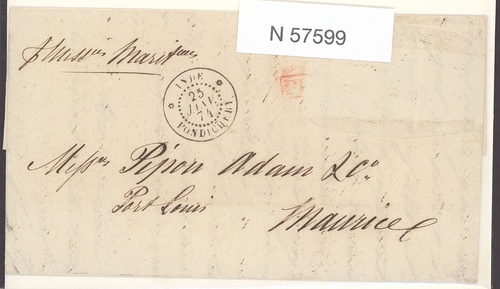 N 57599
p Mess^ies Marit^imes
INDE
25
JANV.
74
PONDICHERY
Mess^rs Pipon Adam & C^o
Port Louis
Maurice